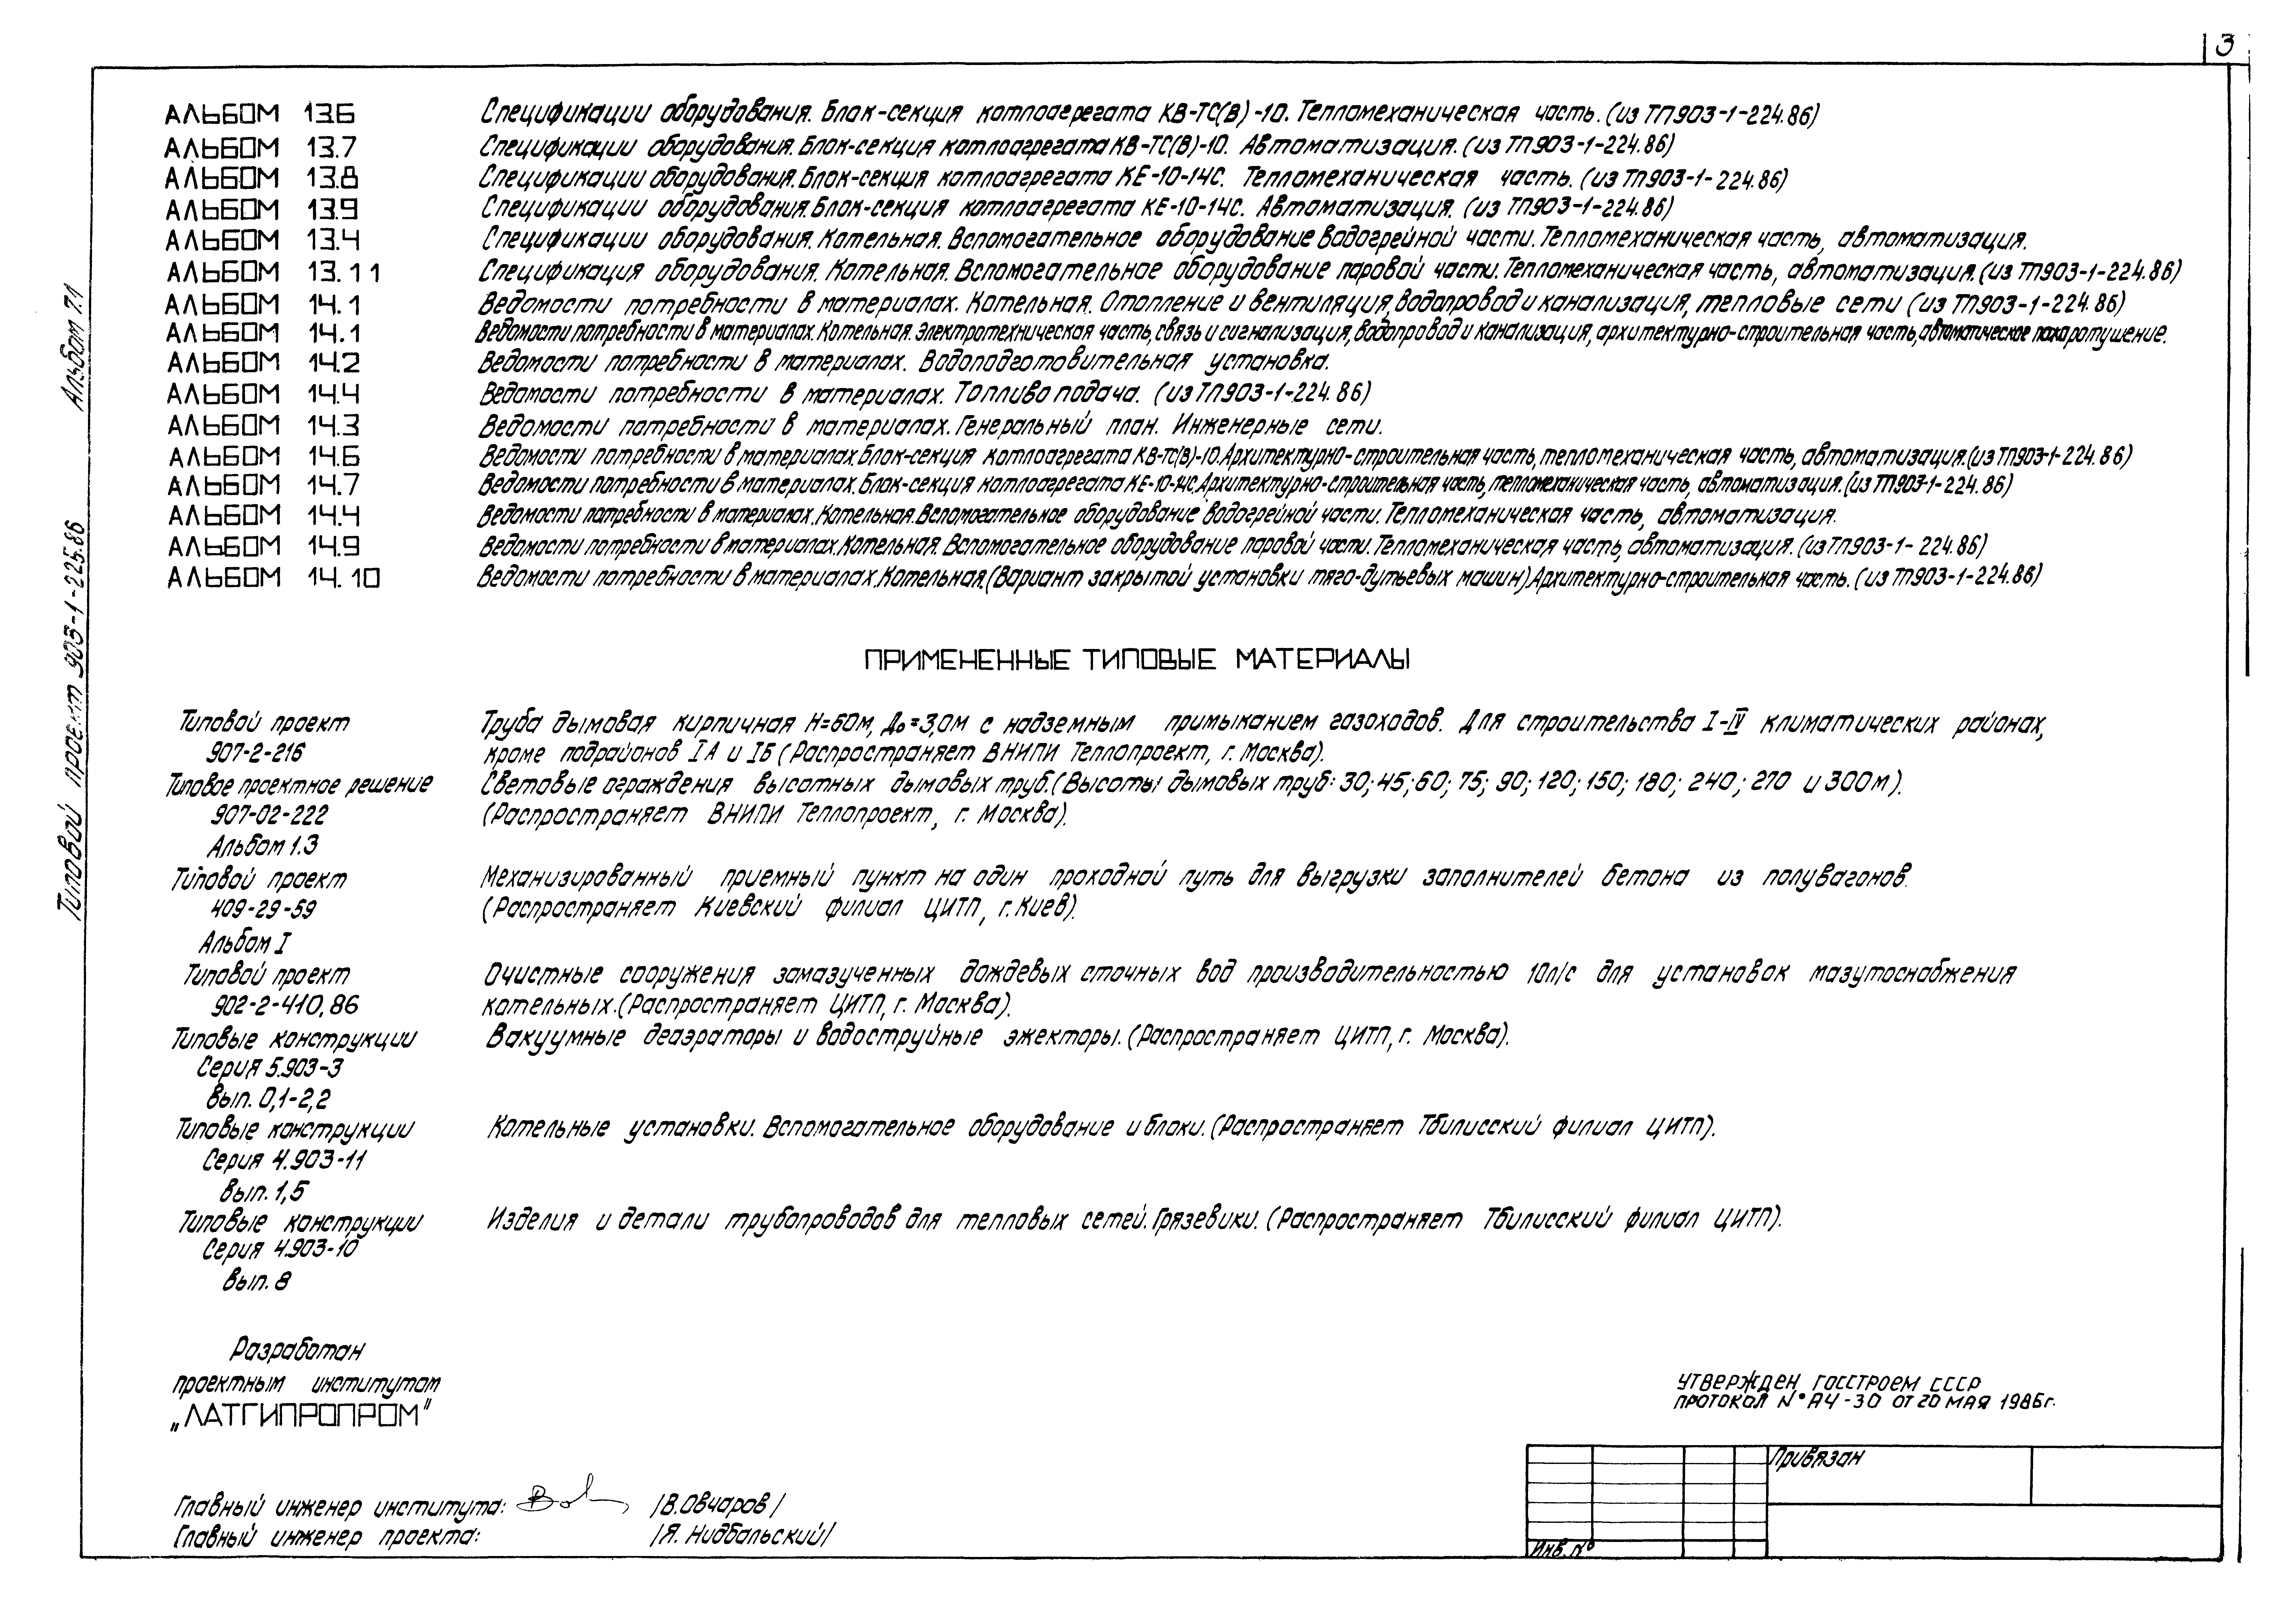 3
АЛЬБОМ 13.6 Спецификации оборудования. Блок-секция котлоагрегата КВ-ТС(В)-10. Тепломеханическая часть. (из ТП903-1-224.86)
АЛЬБОМ 13.7 Спецификации оборудования. Блок-секция котлоагрегата КВ-ТС(В)-10. Автоматизация. (из ТП903-1-224.86)
АЛЬБОМ 13.8 Спецификации оборудования. Блок-секция котлоагрегата КЕ-10-14С. Тепломеханическая часть. (из ТП903-1-224.86)
АЛЬБОМ 13.9 Спецификации оборудования. Блок-секция котлоагрегата КЕ-10-14С. Автоматизация. (из ТП903-1-224.86)
АЛЬБОМ 13.4 Спецификации оборудования. Котельная. Вспомогательное оборудование водогрейной части. Тепломеханическая часть, автоматизация.
АЛЬБОМ 13.11 Спецификация оборудования. Котельная. Вспомогательное оборудование паровой части. Тепломеханическая часть, автоматизация. (из ТП903-1-224.86)
АЛЬБОМ 14.1 Ведомости потребности в материалах. Котельная. Отопление и вентиляция, водопровод и канализация, тепловые сети (из ТП903-1-224.86)
АЛЬБОМ 14.1 Ведомости потребности в материалах. Котельная. Электротехническая часть, связь и сигнализация, водопровод и канализация, архитектурно-строительная часть, автоматическое пожаротушение.
АЛЬБОМ 14.2 Ведомости потребности в материалах. Водоподготовительная установка.
АЛЬБОМ 14.4 Ведомости потребности в материалах. Топливоподача. (из ТП903-1-224.86)
АЛЬБОМ 14.3 Ведомости потребности в материалах. Генеральный план. Инженерные сети.
АЛЬБОМ 14.6 Ведомости потребности в материалах. Блок-секция котлоагрегата КВ-ТС(В)-10. Архитектурно-строительная часть, тепломеханическая часть, автоматизация. (из ТП903-1-224.86)
АЛЬБОМ 14.7 Ведомости потребности в материалах. Блок-секция котлоагрегата КЕ-10-14С. Архитектурно-строительная часть, тепломеханическая часть, автоматизация. (из ТП903-1-224.86)
АЛЬБОМ 14.4 Ведомости потребности в материалах. Котельная. Вспомогательное оборудование водогрейной части. Тепломеханическая часть, автоматизация.
АЛЬБОМ 14.9 Ведомости потребности в материалах. Котельная. Вспомогательное оборудование паровой части. Тепломеханическая часть, автоматизация. (из ТП903-1-224.86)
АЛЬБОМ 14.10 Ведомости потребности в материалах. Котельная. (Вариант закрытой установки тяго-дутьевых машин) Архитектурно-строительная часть. (из ТП903-1-224.86)
Альбом 7.1
Типовой проект 903-1-225.86
ПРИМЕНЕННЫЕ ТИПОВЫЕ МАТЕРИАЛЫ
Типовой проект Труба дымовая кирпичная Н=60м, До=3,0м с надземным примыканием газоходов. Для строительства I-IV климатических районах,
907-2-216 кроме подрайонов IА и IБ (Распространяет ВНИПИ Теплопроект, г. Москва).
Типовое проектное решение Световые ограждения высотных дымовых труб. (Высоты дымовых труб: 30; 45; 60; 75; 90; 120; 150; 180; 240; 270 и 300м).
907-02-222 (Распространяет ВНИПИ Теплопроект, г. Москва).
Альбом 1.3
Типовой проект Механизированный приемный пункт на один проходной путь для выгрузки заполнителей бетона из полувагонов.
409-29-59 (Распространяет Киевский филиал ЦИТП, г. Киев).
Альбом I
Типовой проект Очистные сооружения замазученных дождевых сточных вод производительностью 10л/с для установок мазутоснабжения
902-2-410,86 котельных. (Распространяет ЦИТП, г. Москва).
Типовые конструкции Вакуумные деаэраторы и водоструйные эжекторы. (Распространяет ЦИТП, г. Москва).
Серия 5.903-3
Вып. 0,1-2,2
Типовые конструкции Котельные установки. Вспомогательное оборудование и блоки. (Распространяет Тбилисский филиал ЦИТП).
Серия 4.903-11
Вып. 1,5
Типовые конструкции Изделия и детали трубопроводов для тепловых сетей. Грязевики. (Распространяет Тбилисский филиал ЦИТП).
Серия 4.903-10
Вып. 8
Разработан
проектным институтом
„ЛАТГИПРОПРОМ"
УТВЕРЖДЕН ГОССТРОЕМ СССР
ПРОТОКОЛ N° АЧ-30 ОТ 20 МАЯ 1986г.
Главный инженер института: /В.Овчаров/
Главный инженер проекта: /Я. Нидбальский/
Привязан
Инв. N°